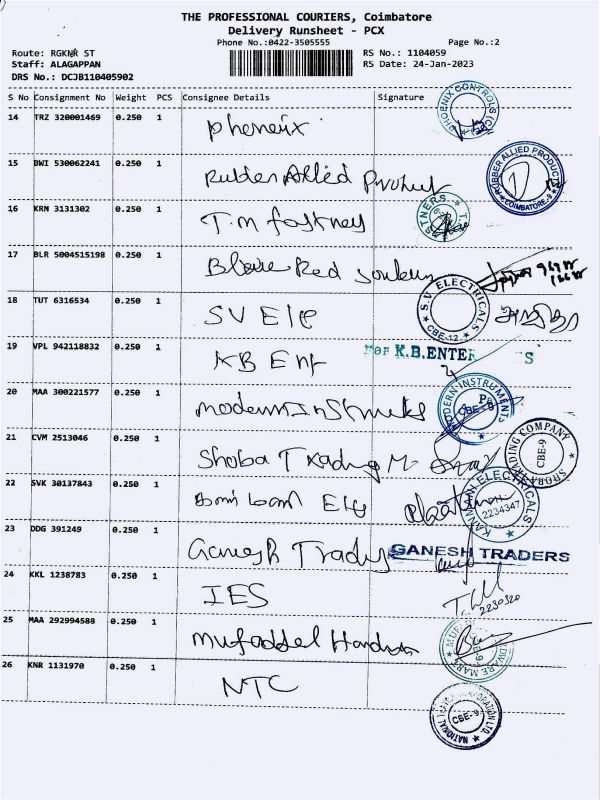 THE PROFESSIONAL COURIERS, Coimbatore
Delivery Runsheet - PCX
Phone No.:0422-3505555 Page No.:2
Route: RGKNR ST RS No.: 1104059
Staff: ALAGAPPAN RS Date: 24-Jan-2023
DRS No.: DCJB110405902
S No Consignment No Weight PCS Consignee Details Signature
14 TRZ 320001469 0.250 1
PHOENIX CONTROLS
15 BWI 530062241 0.250 1
Rubber Allied Product
RUBBER ALLIED PRODUCT COIMBATORE-9
16 KRN 3131302 0.250 1
T.M
17 BLR 5004515198 0.250 1
Red
18 TUT 6316534 0.250 1
SV Ele
S.V. ELECTRICALS CBE-12
அனிதா
19 VPL 942118832 0.250 1
KB Ent
For K.B.ENTER S
20 MAA 300221577 0.250 1
modern Instruments
MODERN INSTRUMENTS CBE-9
21 CVM 2513046 0.250 1
Shoba Trading
SHOBA TRADING COMPANY CBE-9
22 SVK 30137843 0.250 1
KANNAN ELECTRICALS 2234347
23 DDG 391249 0.250 1
Ganesh Tradg
GANESH TRADERS
24 KKL 1238783 0.250 1
IES
2230320
25 MAA 292994588 0.250 1
Mufaddal
26 KNR 1131970 0.250 1
NTC
CBE-9